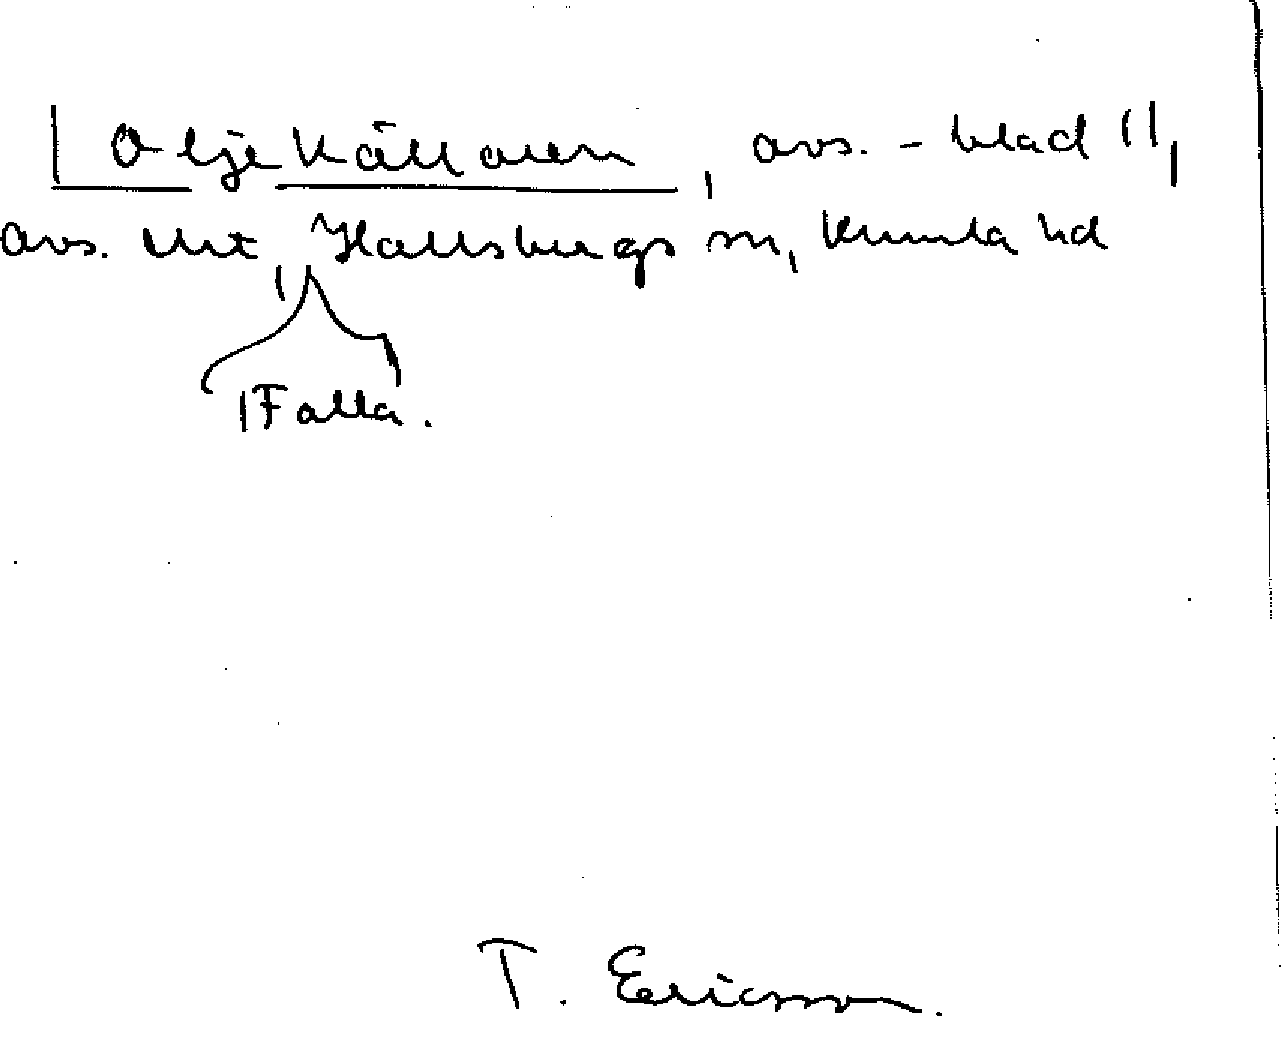 Oljekällaren, avs. - blad 11,
avs. Utt, Hallsbergs sn, Kumla hd
Falla.
T. Ericsson.